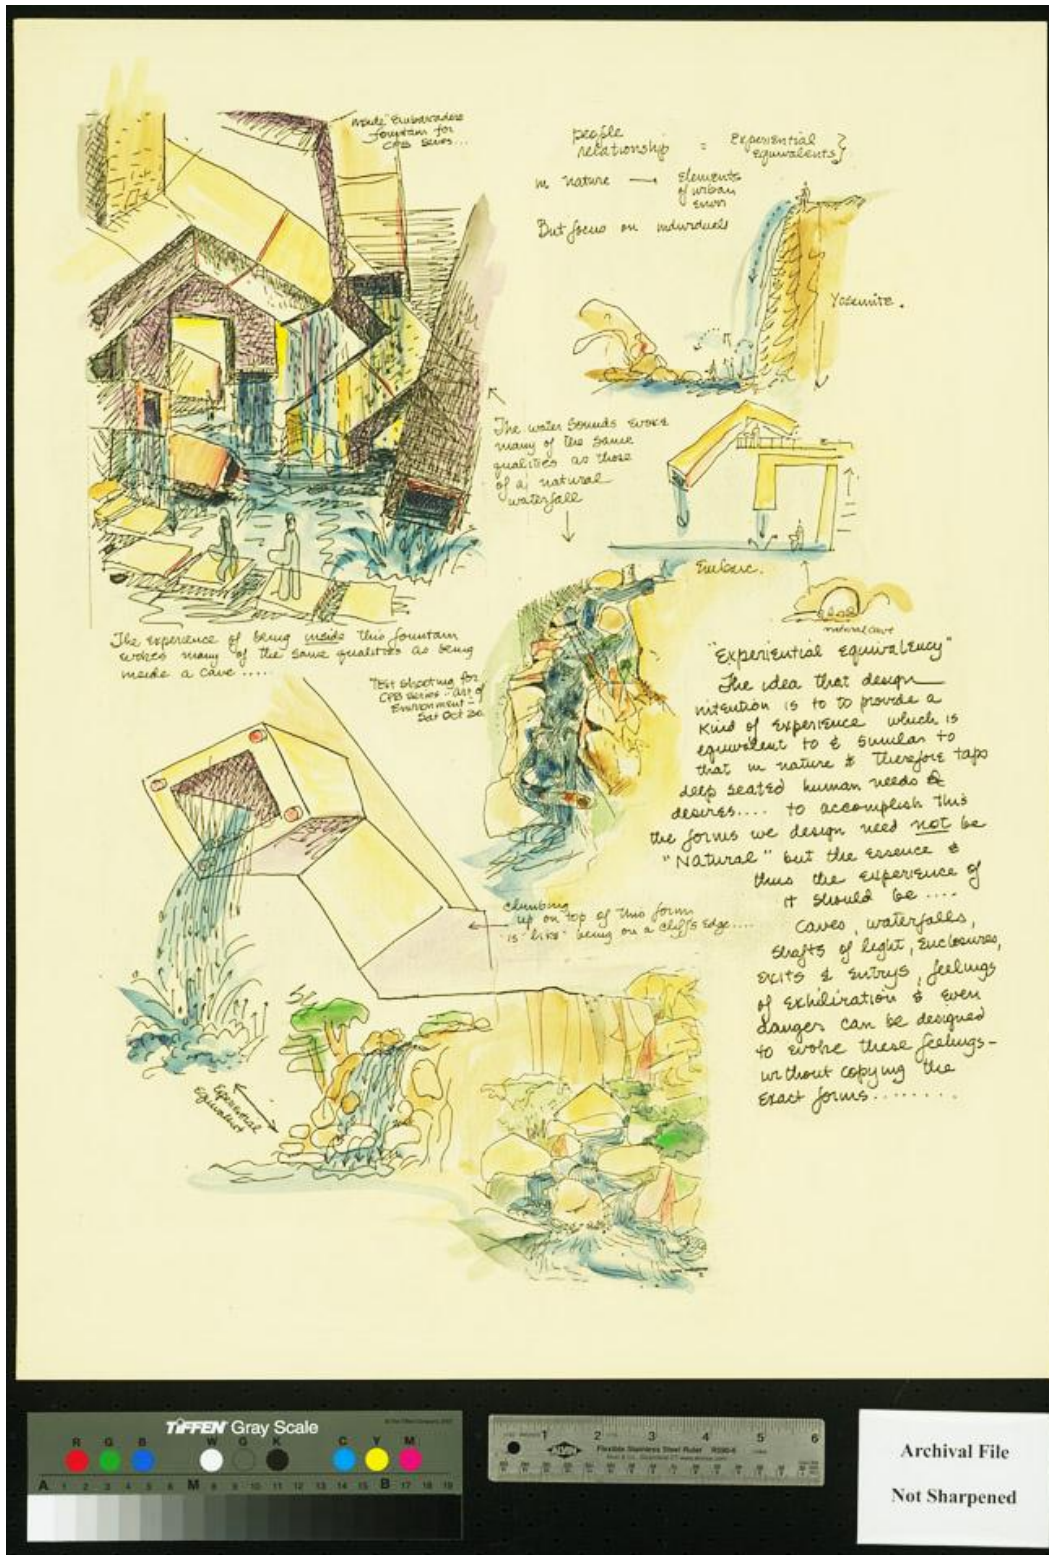 inside Embarcadero
fountain for
CPB series...
people
relationship = Experiential
Equivalents}
in nature → Elements
of urban
envir
But focus on individuals
Yosemite.
The water sounds evoke
many of the same
qualities as those
of a natural
waterfall
Embarc.
natural cave
The experience of being inside this fountain
evokes many of the same qualities as being
inside a cave ....
Test shooting for
CPB series - art of
Environment -
Sat Oct 20
"Experiential Equivalency"
The idea that design
intention is to to provide a
kind of experience which is
equivalent to & similar to
that in nature & therefore taps
deep seated human needs &
desires.... to accomplish this
the forms we design need not be
"Natural" but the essence &
thus the experience of
it should be ....
caves, waterfalls,
shafts of light, enclosures,
exits & entrys, feelings
of exhiliration & even
danger can be designed
to evoke these feelings -
without copying the
exact forms ........
climbing
up on top of this form
is "like" being on a cliff's edge....
Experiential
Equivalent
TIFFEN Gray Scale
R G B W G K C Y M
A 1 2 3 4 5 6 M 8 9 10 11 12 13 14 15 B 17 18 19
1 2 3 4 5 6
Flexible Stainless Steel Ruler
Archival File
Not Sharpened